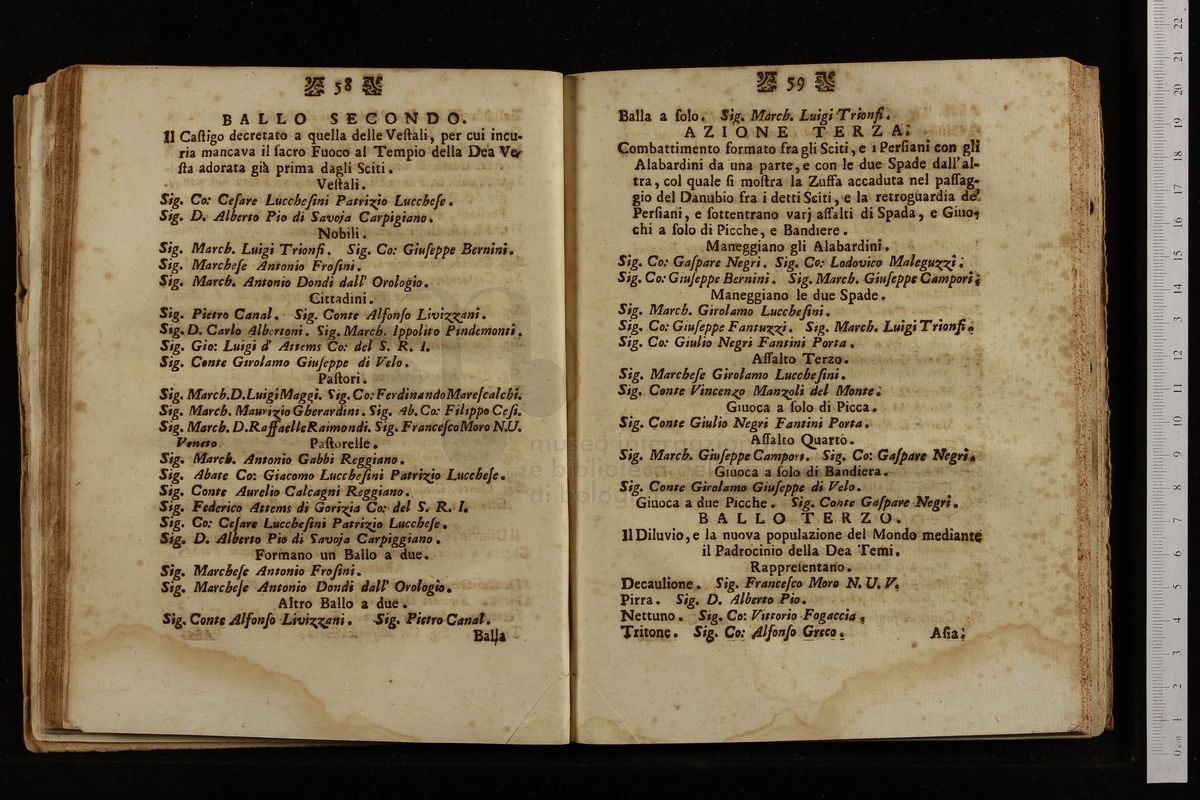 58
BALLO SECONDO.
Il Caſtigo decretato a quella delle Veſtali, per cui incu-
ria mancava il ſacro Fuoco al Tempio della Dea Ve-
ſta adorata già prima dagli Sciti.
Veſtali.
Sig. Co: Ceſare Luccheſini Patrizio Luccheſe.
Sig. D. Alberto Pio di Savoja Carpigiano.
Nobili.
Sig. March. Luigi Trionfi. Sig. Co: Giuſeppe Bernini.
Sig. Marcheſe Antonio Froſini.
Sig. March. Antonio Dondi dall' Orologio.
Cittadini.
Sig. Pietro Canal. Sig. Conte Alfonſo Livizzani.
Sig. D. Carlo Albertoni. Sig. March. Ippolito Pindemonti.
Sig. Gio: Luigi d' Attems Co: del S. R. I.
Sig. Conte Girolamo Giuſeppe di Velo.
Paſtori.
Sig. March. D. Luigi Maggi. Sig. Co: Ferdinando Mareſcalchi.
Sig. March. Maurizio Gherardini. Sig. Ab. Co: Filippo Ceſi.
Sig. March. D. Raffaelle Raimondi. Sig. Franceſco Moro N.U.
Veneto. Paſtorelle.
Sig. March. Antonio Gabbi Reggiano.
Sig. Abate Co: Giacomo Luccheſini Patrizio Luccheſe.
Sig. Conte Aurelio Calcagni Reggiano.
Sig. Federico Attems di Gorizia Co: del S. R. I.
Sig. Co: Ceſare Luccheſini Patrizio Luccheſe.
Sig. D. Alberto Pio di Savoja Carpiggiano.
Formano un Ballo a due.
Sig. Marcheſe Antonio Froſini.
Sig. Marcheſe Antonio Dondi dall' Orologio.
Altro Ballo a due.
Sig. Conte Alfonſo Livizzani. Sig. Pietro Canal.
Balla
59
Balla a ſolo. Sig. March. Luigi Trionfi.
AZIONE TERZA.
Combattimento formato fra gli Sciti, e i Perſiani con gli
Alabardini da una parte, e con le due Spade dall' al-
tra, col quale ſi moſtra la Zuffa accaduta nel paſſag-
gio del Danubio fra i detti Sciti, e la retroguardia de'
Perſiani, e ſottentrano varj aſſalti di Spada, e Giuo-
chi a ſolo di Picche, e Bandiere.
Maneggiano gli Alabardini.
Sig. Co: Gaſpare Negri. Sig. Co: Lodovico Maleguzzi.
Sig. Co: Giuſeppe Bernini. Sig. March. Giuſeppe Campori.
Maneggiano le due Spade.
Sig. March. Girolamo Luccheſini.
Sig. Co: Giuſeppe Fantuzzi. Sig. March. Luigi Trionfi.
Sig. Co: Giulio Negri Fantini Porta.
Aſſalto Terzo.
Sig. Marcheſe Girolamo Luccheſini.
Sig. Conte Vincenzo Manzoli del Monte.
Giuoca a ſolo di Picca.
Sig. Conte Giulio Negri Fantini Porta.
Aſſalto Quarto.
Sig. March. Giuſeppe Campori. Sig. Co: Gaſpare Negri.
Giuoca a ſolo di Bandiera.
Sig. Conte Girolamo Giuſeppe di Velo.
Giuoca a due Picche. Sig. Conte Gaſpare Negri.
BALLO TERZO.
Il Diluvio, e la nuova populazione del Mondo mediante
il Padrocinio della Dea Temi.
Rappreſentano.
Decaulione. Sig. Franceſco Moro N. U. V.
Pirra. Sig. D. Alberto Pio.
Nettuno. Sig. Co: Vittorio Fogaccia.
Tritone. Sig. Co: Alfonſo Greco.
Aſia.
museo internazionale
e biblioteca della
di bolo
0 cm 1 2 3 4 5 6 7 8 9 10 11 12 13 14 15 16 17 18 19 20 21 22